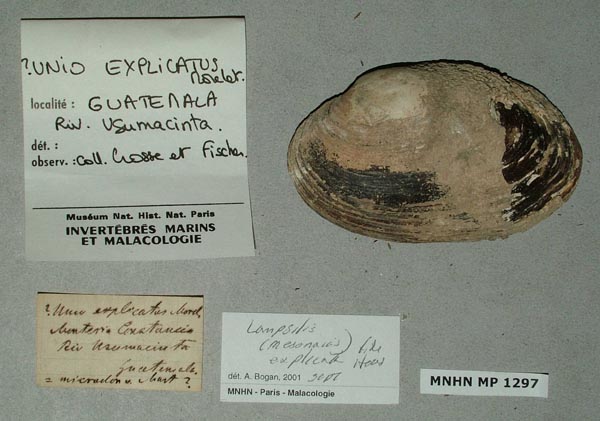 ?UNIO EXPLICATUS
Morelet.
localité : GUATEMALA
Riv. Usumacinta.
dét. :
observ. : coll. Crosse et Fischer.
Muséum Nat. Hist. Nat. Paris
INVERTÉBRÉS MARINS
ET MALACOLOGIE
? Unio explicatus Morel.
Riv Usumacinta
Guatemala
= microdon v. Mart ?
Lampsilis
explicata
dét. A. Bogan, 2001 Sept
MNHN - Paris - Malacologie
MNHN MP 1297